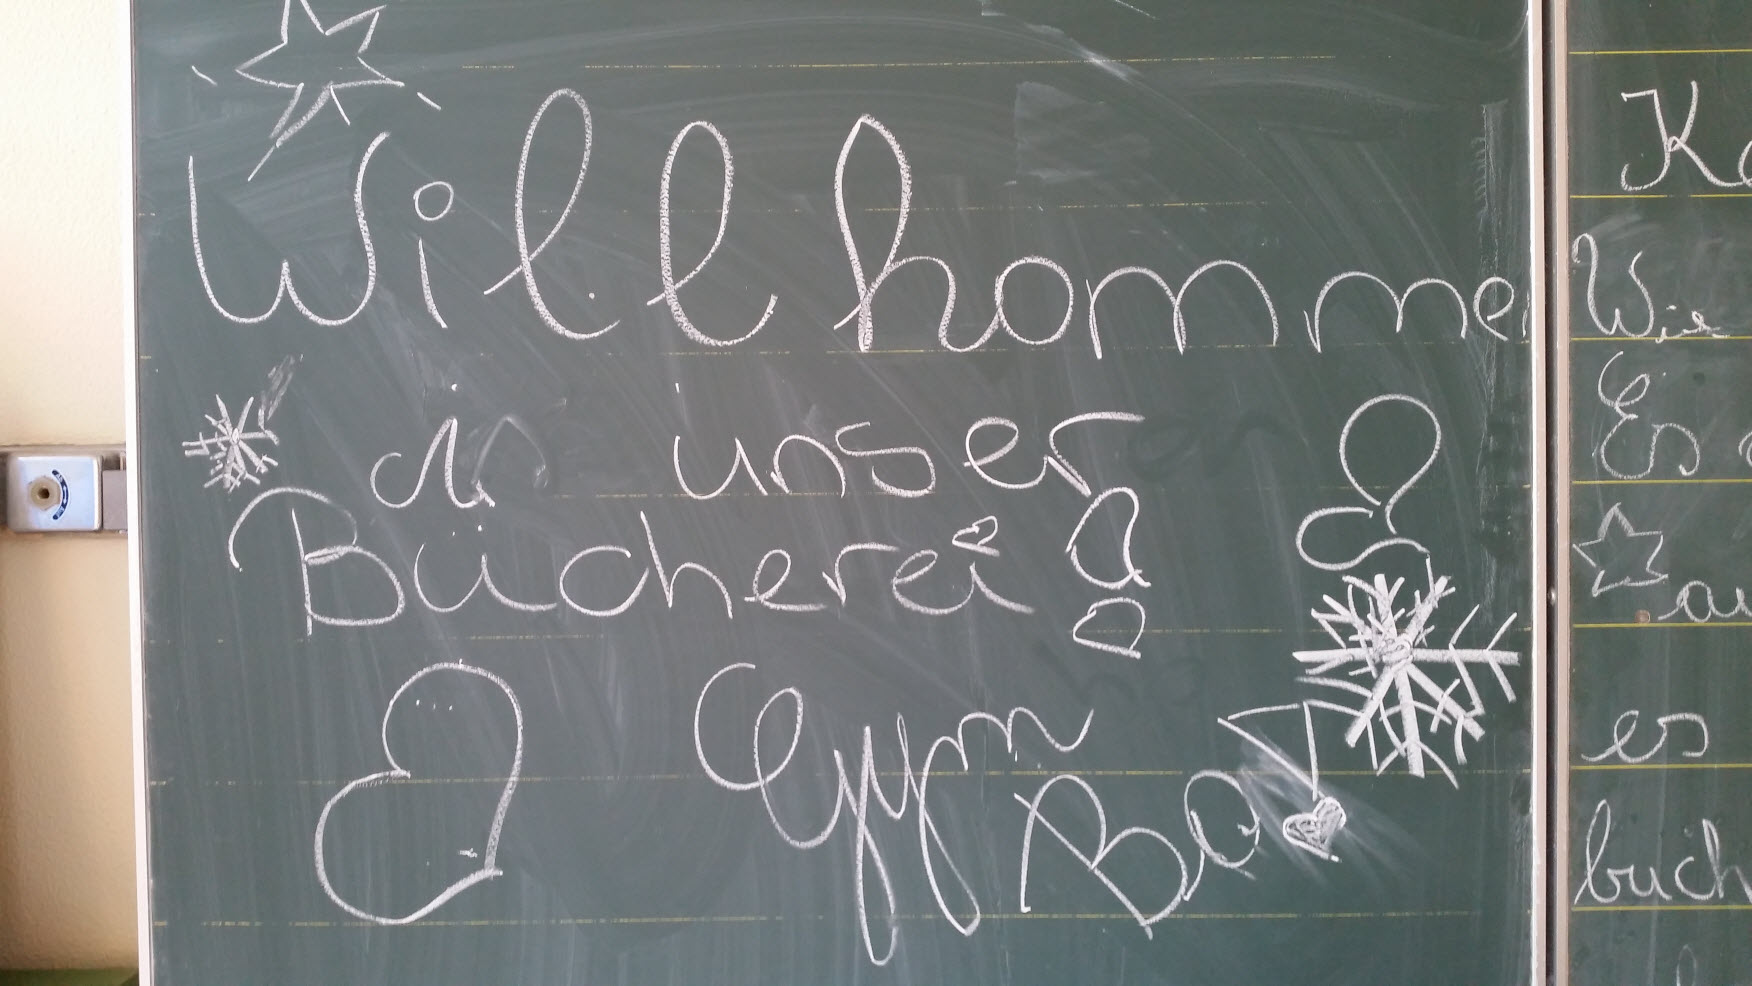 Willkommen
in unserer
Bücherei
GymBa
K
Wie
Es
au
es
buch